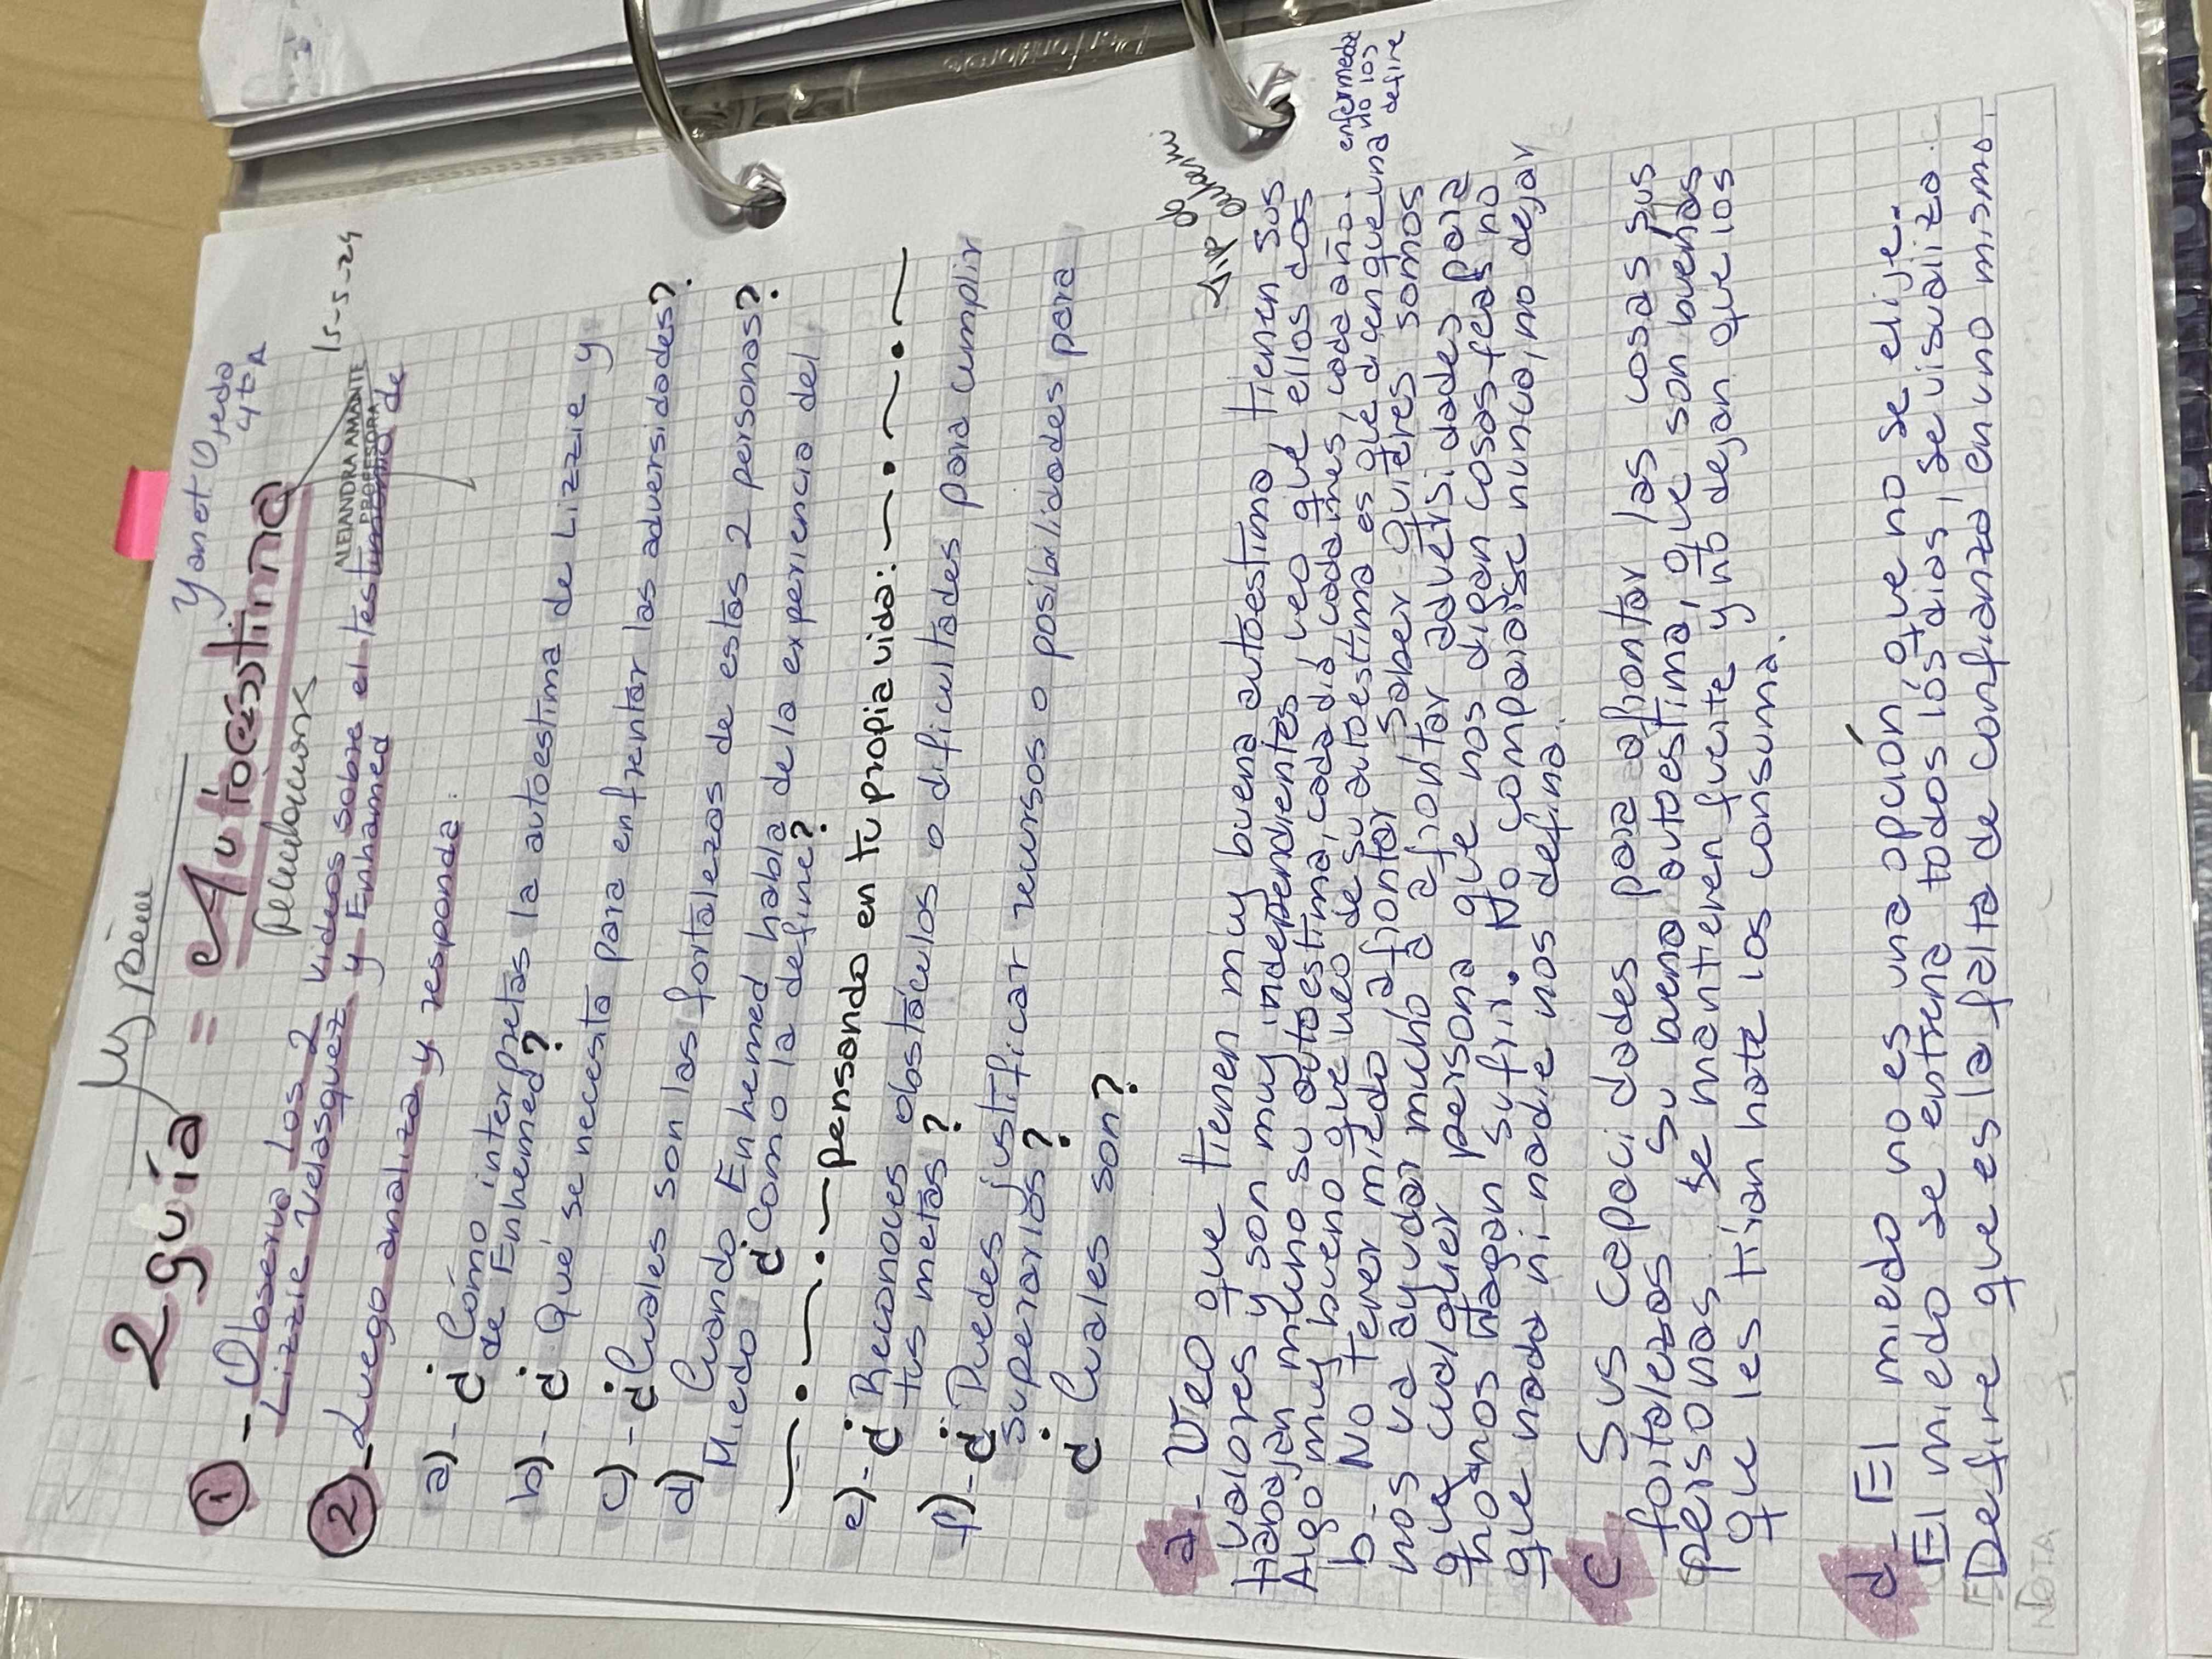 Yanet Ojeda
4to A
Muy Bien
2 guía = Autoestima
15-5-24
ALEJANDRA AMANTE
PROFESORA
1- Observa los 2 videos sobre el testimonio de
Lizzie Velasquez y Enhamed
2- Luego analiza y responda.
a)- ¿Cómo interpretas la autoestima de Lizzie y
de Enhemed?
b)- ¿Qué se necesita para enfrentar las adversidades?
c)- ¿Cuales son las fortalezas de estas 2 personas?
d) Cuando Enhemed habla de la experiencia del
Miedo ¿Como la define?
pensando en tu propia vida:
e)- ¿Reconoces obstáculos o dificultades para cumplir
tus metas?
f)- ¿Puedes justificar recursos o posibilidades para
superarlos?
¿Cuales son?
a- Veo que tienen muy buena autoestima, tienen sus
valores y son muy independientes, veo que ellos dos
trabajan mucho su autoestima, cada día, cada mes, cada año.
Algo muy bueno que veo de su autoestima es que dicen que una enfermedad no los define
b- No tener miedo afrontar saber quiénes somos
nos va ayudar mucho a afrontar adversidades para
que cualquier persona que nos digan cosas feas no
nos hagan sufrir. No compararse nunca, no dejar
que nada ni nadie nos defina.
c Sus capacidades para afrontar las cosas sus
fortalezas su buena autoestima, que son buenas
personas. Se mantienen fuerte y no dejan que los
que les tiran hate los consuma.
d- El miedo no es una opción, que no se elije.
El miedo se entrena todos los dias, se visualiza.
Define que es la falta de confianza en uno mismo.
NOTA